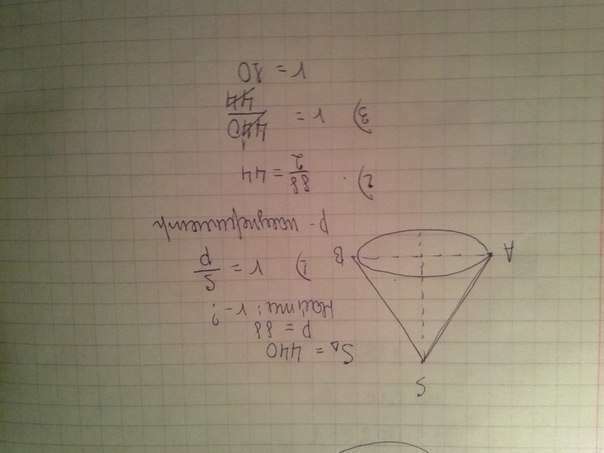 S
A
B
S△ = 440
p = 88
Найти: r - ?
1) r = S/p
p - полупериметр
2) 88/2 = 44
3) r = 440/44
r = 10